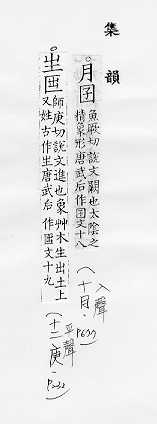 集韻
月囝 魚厥切說文闕也太陰之
精象形唐武后作囝文十八
(入聲
十月.P677)
生𤯔 師庚切說文進也象艸木生出土上
又姓古作𤯓唐武后作𤯔文十九
(平聲
十二庚.P232)